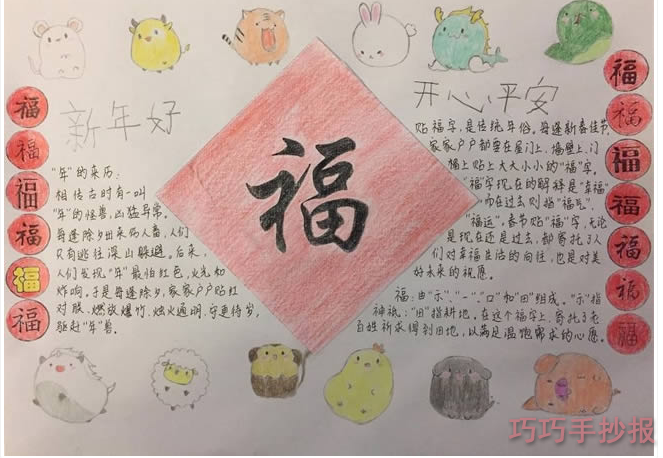 新年好
福
福
福
福
福
福
"年"的来历:
相传古时有一叫
"年"的怪兽,凶猛异常。
每逢除夕出来伤人畜,人们
只有逃往深山躲避。后来,
人们发现"年"最怕红色,火光和
炸响。于是每逢除夕,家家户户贴红
对联、燃放爆竹、烛火通明、守更待岁,
驱赶"年"兽。
福
开心平安
贴福字,是传统年俗。每逢新春佳节,
家家户户都要在屋门上、墙壁上、门
楣上贴上大大小小的"福"字。
"福"字现在的解释是"幸福"
而在过去则指"福气"、
"福运"。春节贴"福"字,无论
是现在还是过去,都寄托了人
们对幸福生活的向往,也是对美
好未来的祝愿。
福:由"示"、"一"、"口"和"田"组成。"示"指
神祇;"田"指耕地。在这个福字上,寄托了老
百姓祈求得到田地,以满足温饱需求的心愿。
福
福
福
福
福
福
福
巧巧手抄报